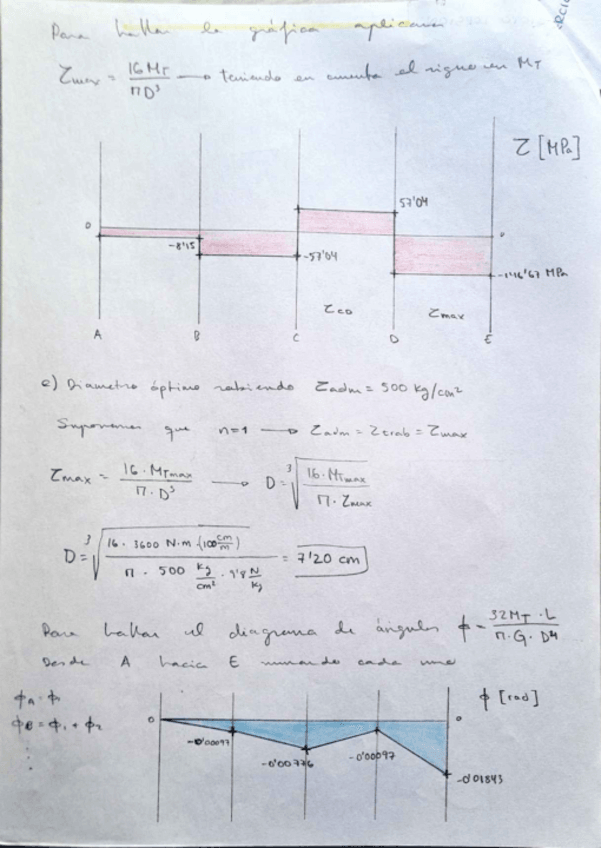 Para hallar la gráfica aplicamos
τmax = 16 MT / π D³ → teniendo en cuenta el signo en MT
τ [MPa]
0
57'04
0
-8'15
-57'04
-146'67 MPa
τCD
τmax
A B C D E
c) Diametro óptimo sabiendo τadm = 500 kg/cm²
Suponemos que n=1 → τadm = τtrab = τmax
τmax = 16 · MTmax / π · D³ → D = ∛(16 · MTmax / π · τmax)
D = ∛(16 · 3600 N·m · (100 cm/m) / π · 500 kg/cm² · 9'8 N/kg) = 7'20 cm
Para hallar el diagrama de ángulos ϕ = 32 MT · L / π · G · D⁴
Desde A hacia E sumando cada uno
ϕ [rad]
ϕA = ϕ1
ϕB = ϕ1 + ϕ2
⋮
0
0
-0'00097
-0'00776
-0'00097
-0'01843